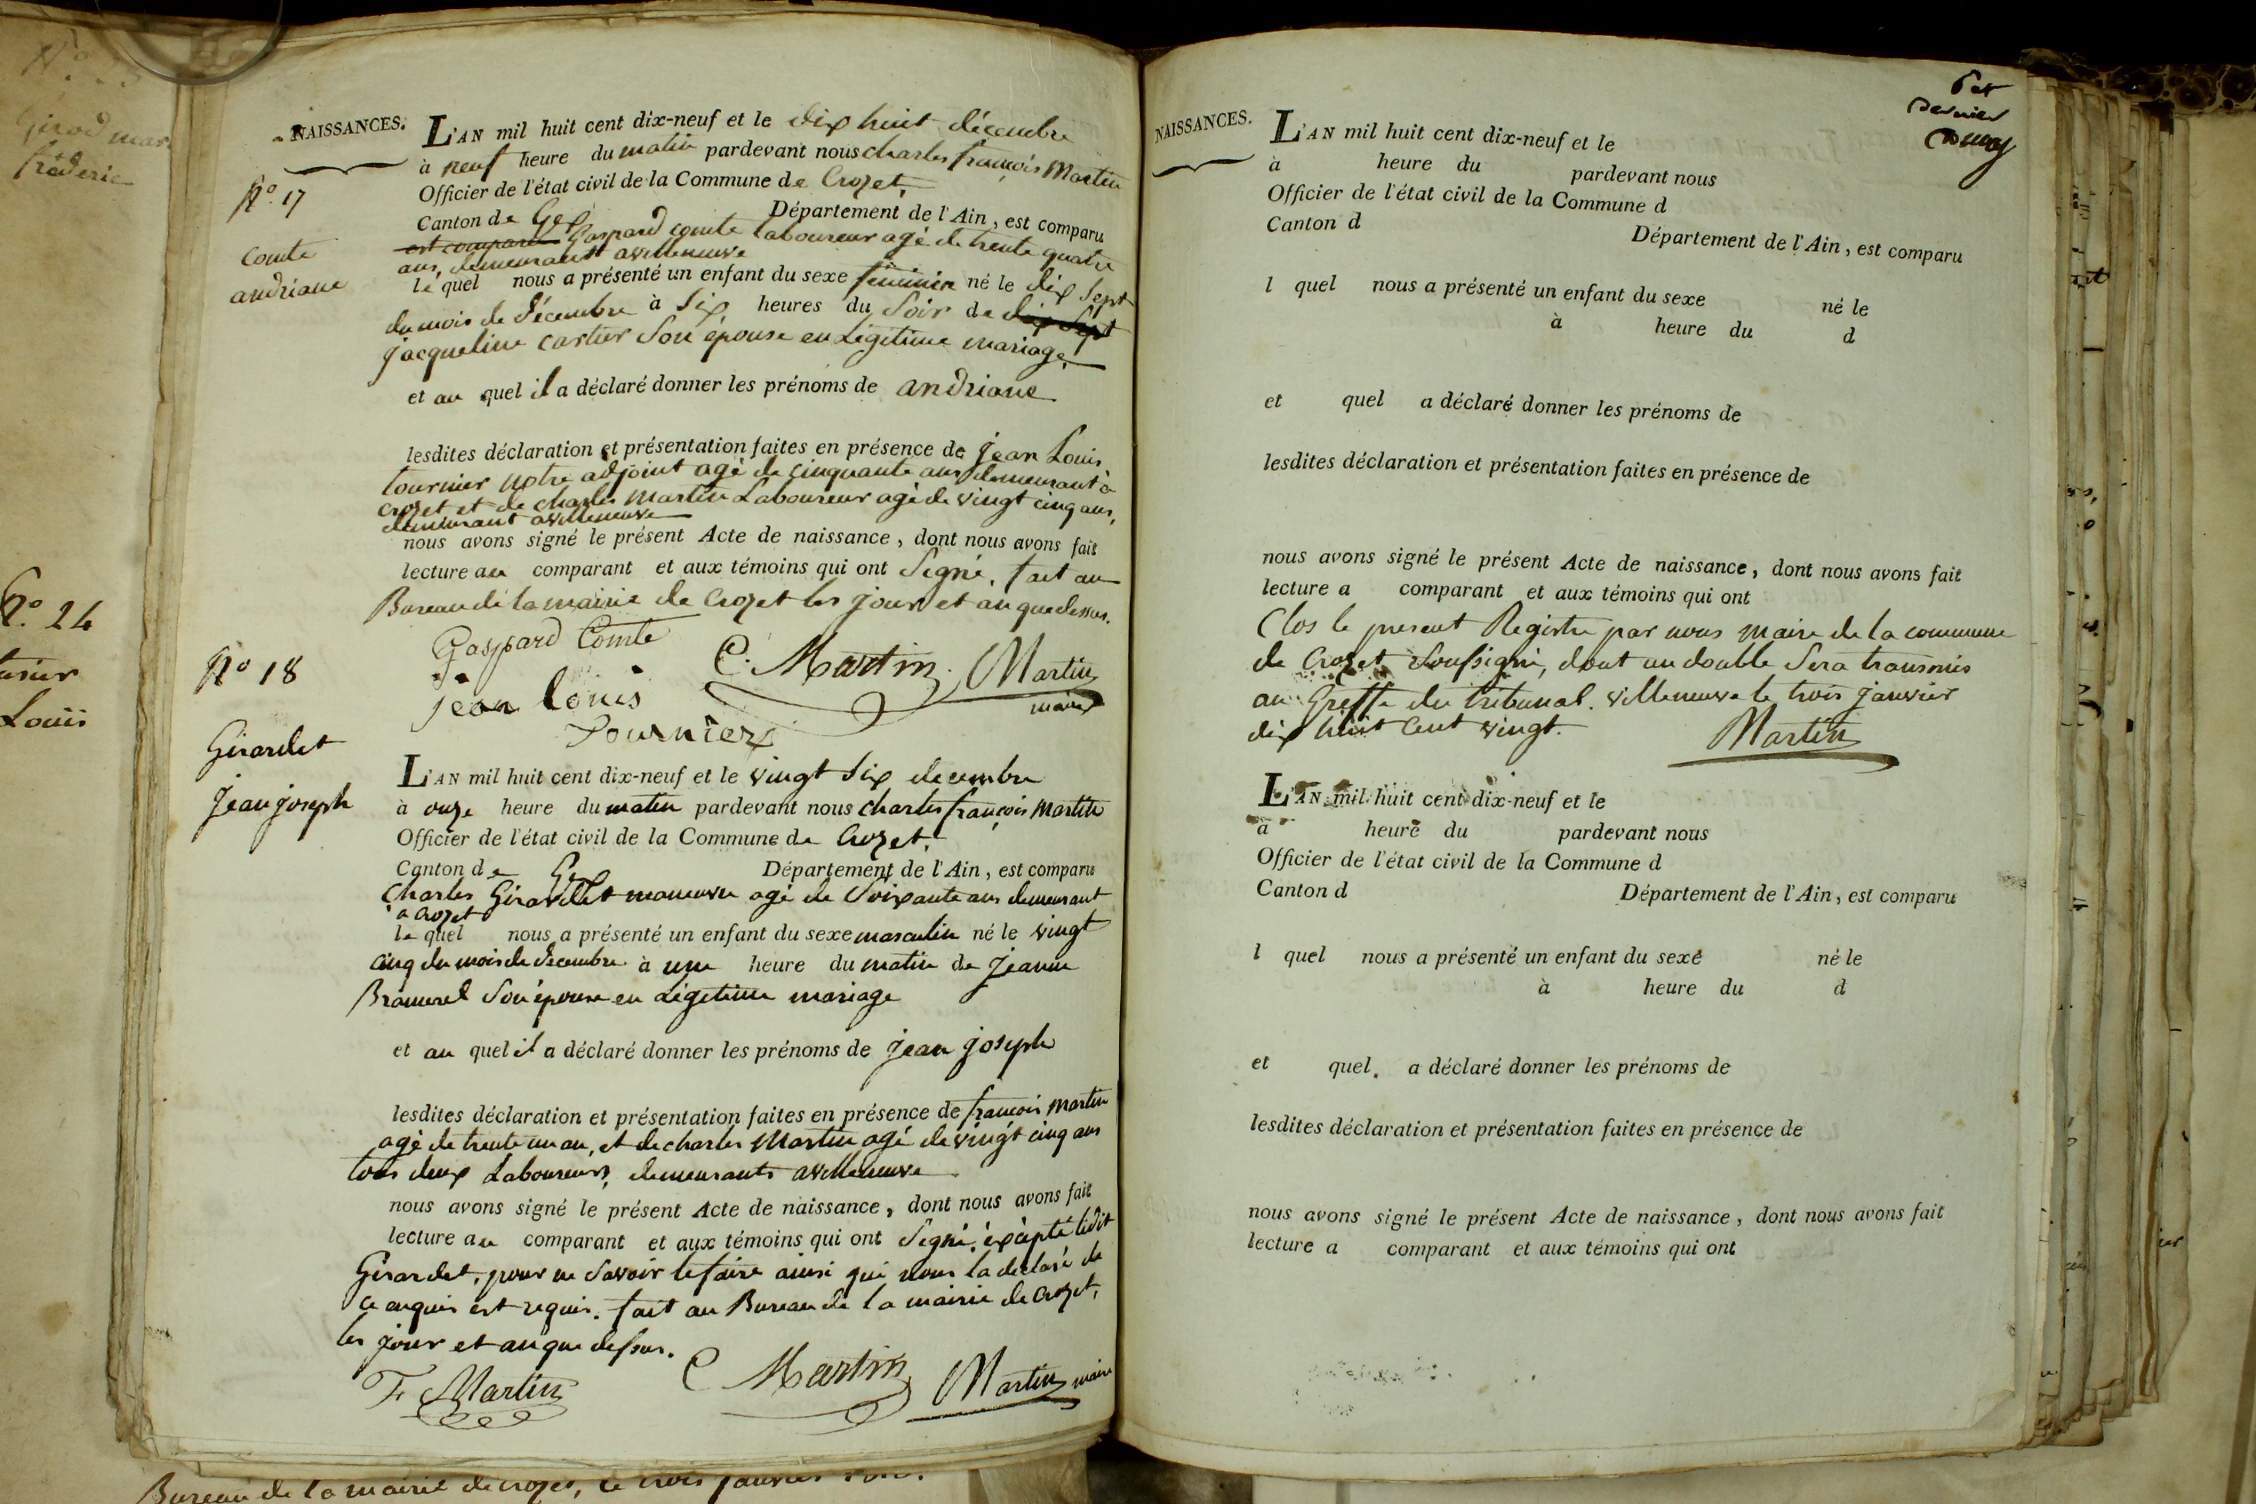 NAISSANCES.
N.º 17
Comte
andriane
L'AN mil huit cent dix-neuf et le dix huit décembre
à neuf heure du matin pardevant nous charles françois Martin
Officier de l'état civil de la Commune de Crozet.
Canton de Gex Département de l'Ain, est comparu
est comparu Gaspard comte laboureur agé de trente quatre
ans, demeurant avilleneuve
le quel nous a présenté un enfant du sexe féminin né le dix sept
du mois de décembre à six heures du soir de dix sept
jacqueline cartier son épouse en Légitime mariage.
et au quel il a déclaré donner les prénoms de andriane
lesdites déclaration et présentation faites en présence de jean Louis
tournier notre adjoint agé de cinquante ans demeurant à
crozet et de charles Martin Laboureur agé de vingt cinq ans,
demeurant avilleneuve
nous avons signé le présent Acte de naissance, dont nous avons fait
lecture au comparant et aux témoins qui ont signé. fait au
Bureau de la mairie de Crozet les jour et an que dessus.
Gaspard Comte
C. Martin
Martin
maire
jean louis
Tournier
N.º 18
Girardet
Jean joseph
L'AN mil huit cent dix-neuf et le vingt six decembre
à onze heure du matin pardevant nous charles françois Martin
Officier de l'état civil de la Commune de Crozet.
Canton de Gex Département de l'Ain, est comparu
Charles Girardet manœuvre agé de soixante ans demeurant
a crozet
le quel nous a présenté un enfant du sexe masculin né le vingt
cinq du mois de décembre à une heure du matin de Jeanne
son épouse en Légitime mariage
et au quel il a déclaré donner les prénoms de jean joseph
lesdites déclaration et présentation faites en présence de françois Martin
agé de trente un an, et de charles Martin agé de vingt cinq ans
tous deux Laboureurs, demeurants avilleneuve
nous avons signé le présent Acte de naissance, dont nous avons fait
lecture au comparant et aux témoins qui ont signé, éxcépté ledit
Girardet, pour ne savoir le faire ainsi qui nous la déclaré de
ce anquis est requis. fait au Bureau de la mairie de crozet,
les jour et an que dessus.
F Martin
C Martin
Martin maire
NAISSANCES.
6 et
dernier
L'AN mil huit cent dix-neuf et le
à heure du pardevant nous
Officier de l'état civil de la Commune d
Canton d Département de l'Ain, est comparu
l quel nous a présenté un enfant du sexe né le
à heure du d
et quel a déclaré donner les prénoms de
lesdites déclaration et présentation faites en présence de
nous avons signé le présent Acte de naissance, dont nous avons fait
lecture a comparant et aux témoins qui ont
Clos le present Registre par nous maire de la commune
de Crozet soussigné, dont un double sera transmis
au Greffe du tribunal. villeneuve le trois janvier
dix huit cent vingt.
Martin
L'AN mil huit cent dix-neuf et le
à heure du pardevant nous
Officier de l'état civil de la Commune d
Canton d Département de l'Ain, est comparu
l quel nous a présenté un enfant du sexe né le
à heure du d
et quel a déclaré donner les prénoms de
lesdites déclaration et présentation faites en présence de
nous avons signé le présent Acte de naissance, dont nous avons fait
lecture a comparant et aux témoins qui ont
Girod
fréderic
N.º 24
Louis
Bureau de la mairie de crozet, le trois janvier